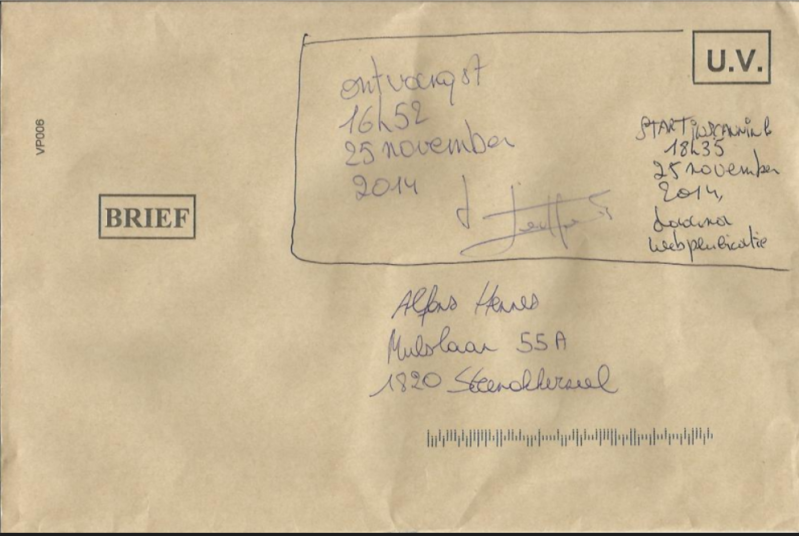 U.V.
VP006
ontvangst
16h52
25 november
2014
START INSCANNING
18h35
25 november
2014,
daarna
webpublicatie
BRIEF
Alfons Hennes
Mulslaan 55A
1820 Steenokkerzeel